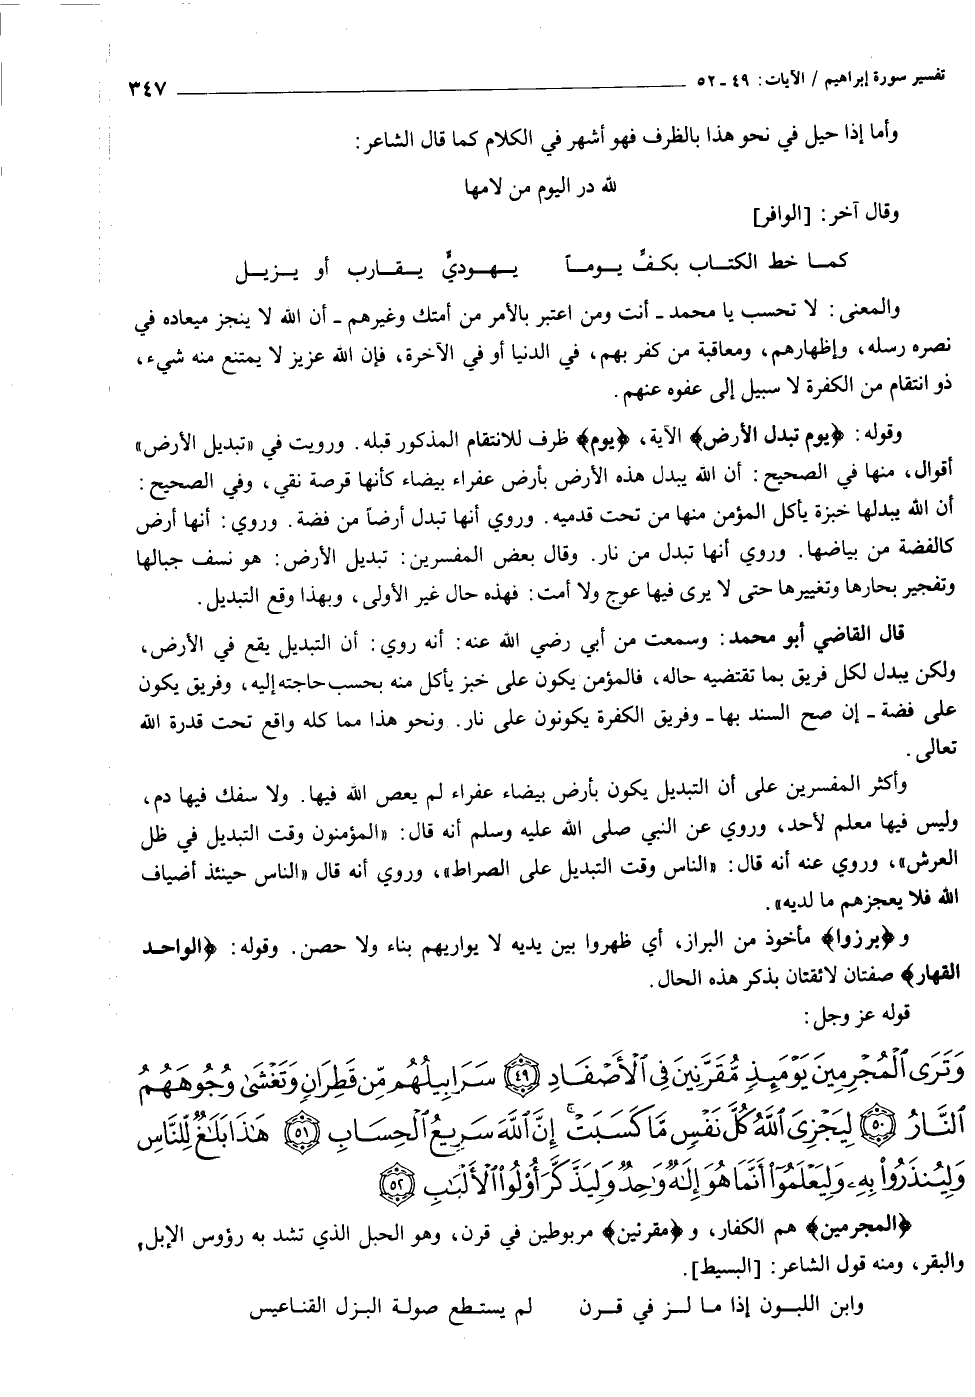 تفسير سورة إبراهيم / الآيات: ٤٩ ـ ٥٢ ٣٤٧
وأما إذا حيل في نحو هذا بالظرف فهو أشهر في الكلام كما قال الشاعر:
لله در اليوم من لامها
وقال آخر: [الوافر]
كمـا خط الكتـاب بكفِّ يـومـاً يـهـوديٍّ يـقـارب أو يـزيـل
والمعنى: لا تحسب يا محمد ـ أنت ومن اعتبر بالأمر من أمتك وغيرهم ـ أن الله لا ينجز ميعاده في
نصره رسله، وإظهارهم، ومعاقبة من كفر بهم، في الدنيا أو في الآخرة، فإن الله عزيز لا يمتنع منه شيء،
ذو انتقام من الكفرة لا سبيل إلى عفوه عنهم.
وقوله: ﴿يوم تبدل الأرض﴾ الآية، ﴿يوم﴾ ظرف للانتقام المذكور قبله. ورويت في «تبديل الأرض»
أقوال، منها في الصحيح: أن الله يبدل هذه الأرض بأرض عفراء بيضاء كأنها قرصة نقي، وفي الصحيح:
أن الله يبدلها خبزة يأكل المؤمن منها من تحت قدميه. وروي أنها تبدل أرضاً من فضة. وروي: أنها أرض
كالفضة من بياضها. وروي أنها تبدل من نار. وقال بعض المفسرين: تبديل الأرض: هو نسف جبالها
وتفجير بحارها وتغييرها حتى لا يرى فيها عوج ولا أمت: فهذه حال غير الأولى، وبهذا وقع التبديل.
قال القاضي أبو محمد: وسمعت من أبي رضي الله عنه: أنه روي: أن التبديل يقع في الأرض،
ولكن يبدل لكل فريق بما تقتضيه حاله، فالمؤمن يكون على خبز يأكل منه بحسب حاجته إليه، وفريق يكون
على فضة ـ إن صح السند بها ـ وفريق الكفرة يكونون على نار. ونحو هذا مما كله واقع تحت قدرة الله
تعالى.
وأكثر المفسرين على أن التبديل يكون بأرض بيضاء عفراء لم يعص الله فيها. ولا سفك فيها دم،
وليس فيها معلم لأحد، وروي عن النبي صلى الله عليه وسلم أنه قال: «المؤمنون وقت التبديل في ظل
العرش»، وروي عنه أنه قال: «الناس وقت التبديل على الصراط»، وروي أنه قال «الناس حينئذ أضياف
الله فلا يعجزهم ما لديه».
و﴿برزوا﴾ مأخوذ من البراز، أي ظهروا بين يديه لا يواريهم بناء ولا حصن. وقوله: ﴿الواحد
القهار﴾ صفتان لائقتان بذكر هذه الحال.
قوله عز وجل:
وَتَرَى ٱلْمُجْرِمِينَ يَوْمَئِذٍ مُّقَرَّنِينَ فِى ٱلْأَصْفَادِ ﴿٤٩﴾ سَرَابِيلُهُم مِّن قَطِرَانٍ وَتَغْشَىٰ وُجُوهَهُمُ
ٱلنَّارُ ﴿٥٠﴾ لِيَجْزِىَ ٱللَّهُ كُلَّ نَفْسٍ مَّا كَسَبَتْ ۚ إِنَّ ٱللَّهَ سَرِيعُ ٱلْحِسَابِ ﴿٥١﴾ هَٰذَا بَلَٰغٌ لِّلنَّاسِ
وَلِيُنذَرُوا۟ بِهِۦ وَلِيَعْلَمُوٓا۟ أَنَّمَا هُوَ إِلَٰهٌ وَٰحِدٌ وَلِيَذَّكَّرَ أُو۟لُوا۟ ٱلْأَلْبَٰبِ ﴿٥٢﴾
﴿المجرمين﴾ هم الكفار، و﴿مقرنين﴾ مربوطين في قرن، وهو الحبل الذي تشد به رؤوس الإبل،
والبقر، ومنه قول الشاعر: [البسيط].
وابن اللبـون إذا مـا لـز في قـرن لم يستطع صولـة البـزل القنـاعيس